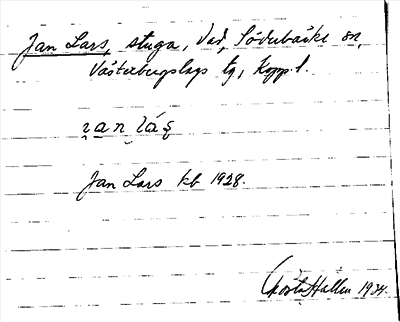 Jan Lars, stuga, Vad, Söderbärke sn,
Västerbergslags tg, Kopp. l.
Jan Lars kb 1928.
Gösta Hallén 1934.